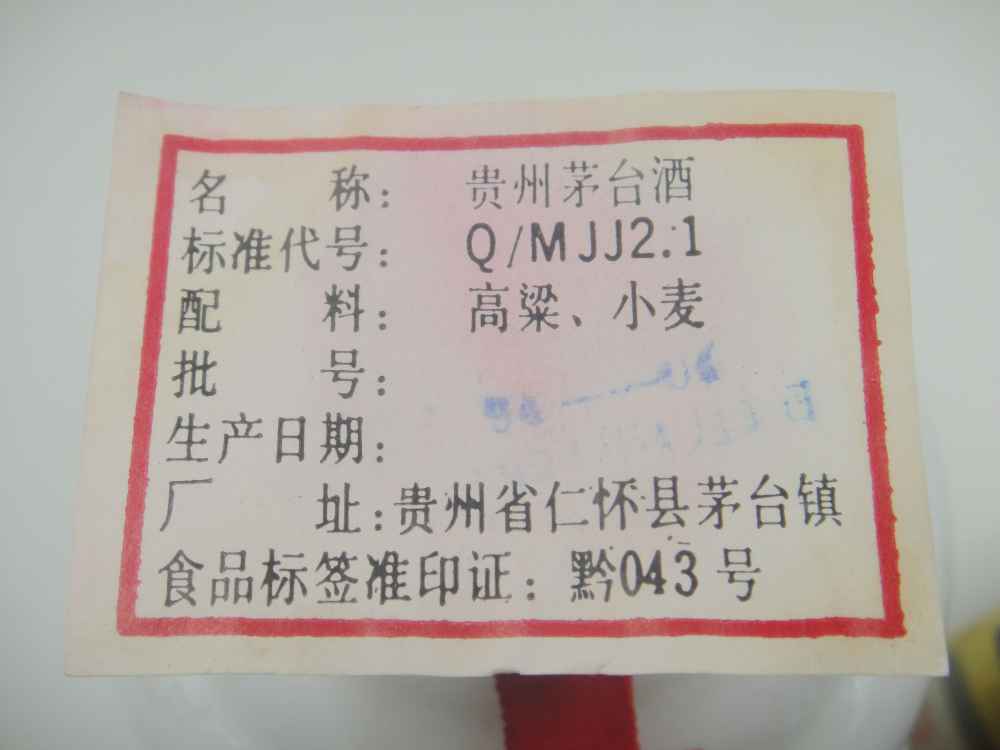 名 称： 贵州茅台酒
标准代号： Q/MJJ2.1
配 料： 高粱、小麦
批 号：
生产日期：
厂 址：贵州省仁怀县茅台镇
食品标签准印证：黔043号